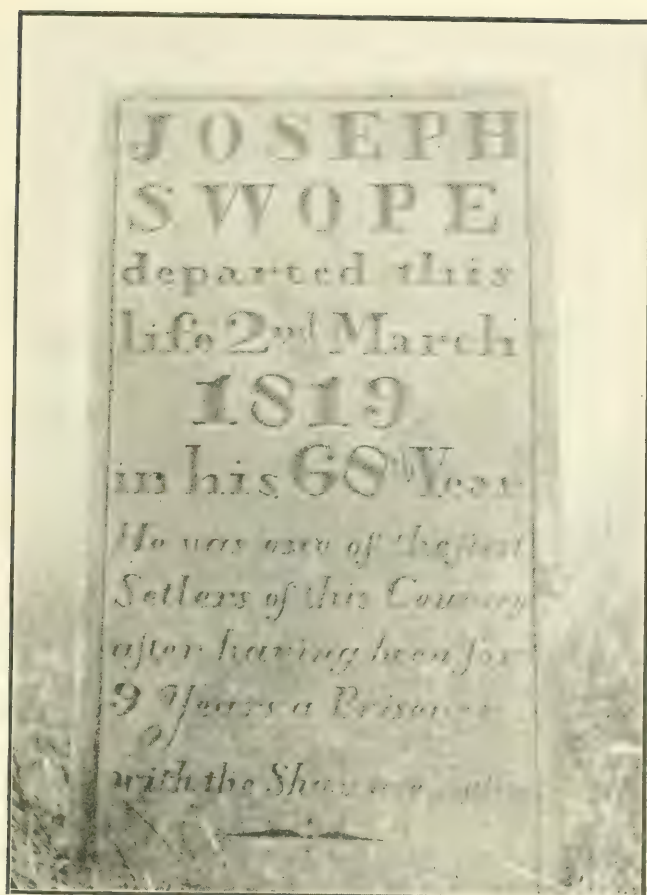 JOSEPH
SWOPE
departed this
life 2nd March
1819
in his 68th Year
He was one of the first
Setlers of this Country
after having been for
9 Years a Prisoner
with the